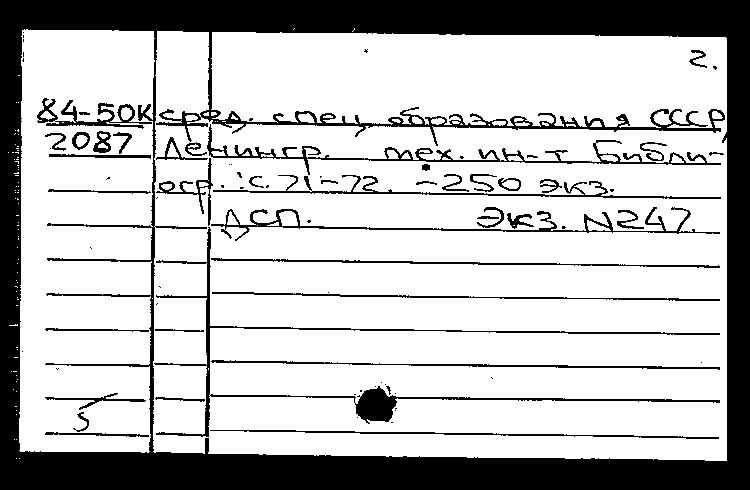 2.
84-50К сред. спец. образования СССР,
2087 Ленингр. тех. ин-т. Библи-
огр.: с. 71-72. - 250 экз.
ДСП. Экз. N247.
5